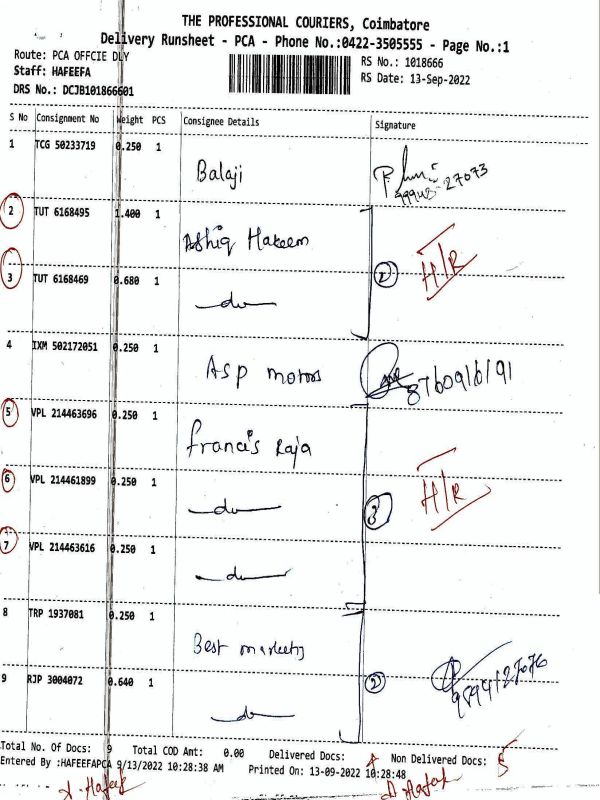 THE PROFESSIONAL COURIERS, Coimbatore
Delivery Runsheet - PCA - Phone No.:0422-3505555 - Page No.:1
Route: PCA OFFCIE DLY
RS No.: 1018666
Staff: HAFEEFA
RS Date: 13-Sep-2022
DRS No.: DCJB101866601
S No Consignment No Weight PCS Consignee Details Signature
1 TCG 50233719 0.250 1
Balaji
99948-27073
2 TUT 6168495 1.400 1
Ashiq Hakeem
H/R
3 TUT 6168469 0.680 1 2
do
4 IXM 502172051 0.250 1
Asp motors 8760916191
5 VPL 214463696 0.250 1
francis Raja
H/R
6 VPL 214461899 0.250 1
do 3
7 VPL 214463616 0.250 1
do
8 TRP 1937081 0.250 1
Best markets
9 RJP 3004072 0.640 1 2 9894127076
do
Total No. Of Docs: 9 Total COD Amt: 0.00 Delivered Docs: 4 Non Delivered Docs: 5
Entered By :HAFEEFAPCA 9/13/2022 10:28:38 AM Printed On: 13-09-2022 10:28:48